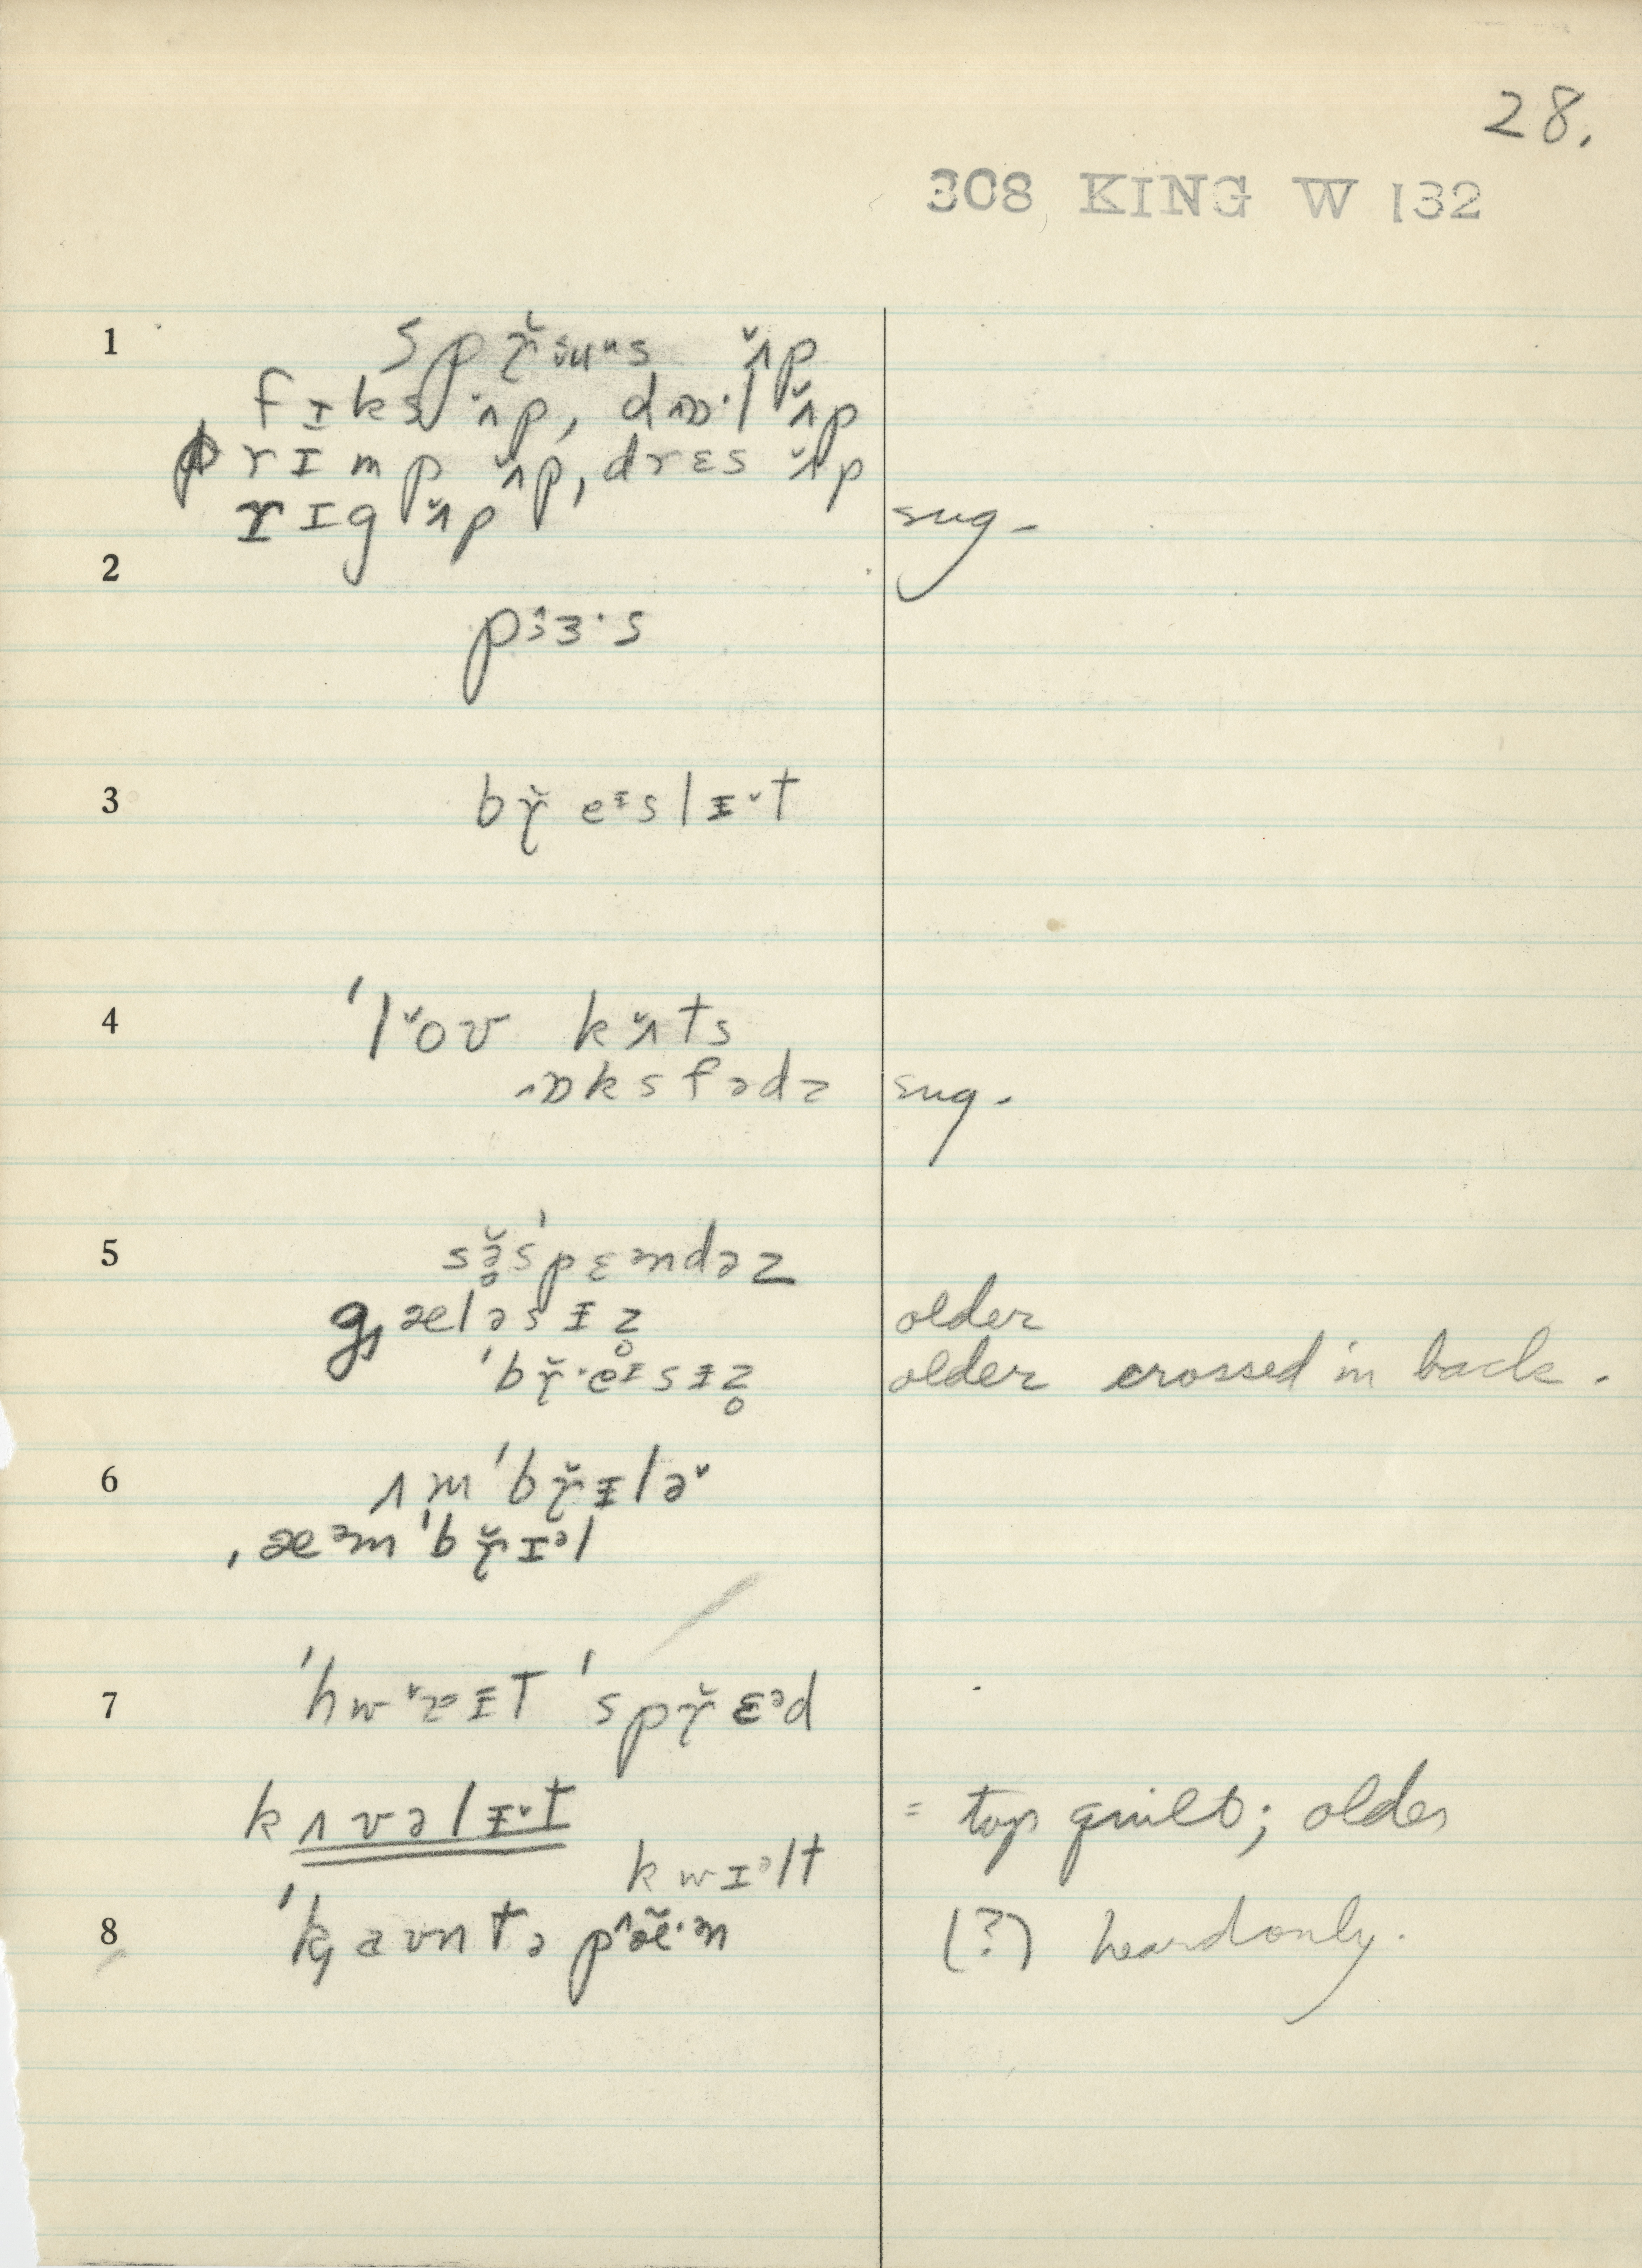 28.
308 KING W 132
1 spɼ̆ʉᵘs ʌ̆p
fɪks ʌ̆p, dɒ·l ʌ̆p
prɪmp ʌ̆p, drɛs ʌ̆p
rɪg ʌ̆p sug.
2
pɜ·s
3 bɼ̆eᵻslᵻ˅t
4 ˈl˅oʊ kʌ̆ts
ɒksfədz sug.
5 sə̥̆sˈpɛᵊndəz
g̡æləsᵻz̥ older
ˈbɼ̆·eᵻsᵻz̥ older crossed in back.
6 ʌmˈbɼ̆ᵻlə˅
ˌæᵊmˈbɼ̆ɪᵊl
7 ˈhw˅ɐᵻt ˈspɼ̆ɛᵊd
kʌvəlᵻ˅t = top quilt; older
kwɪᵊlt
8 ˈk̡aʊntəpæ̆·ᵊn (?) heard only.